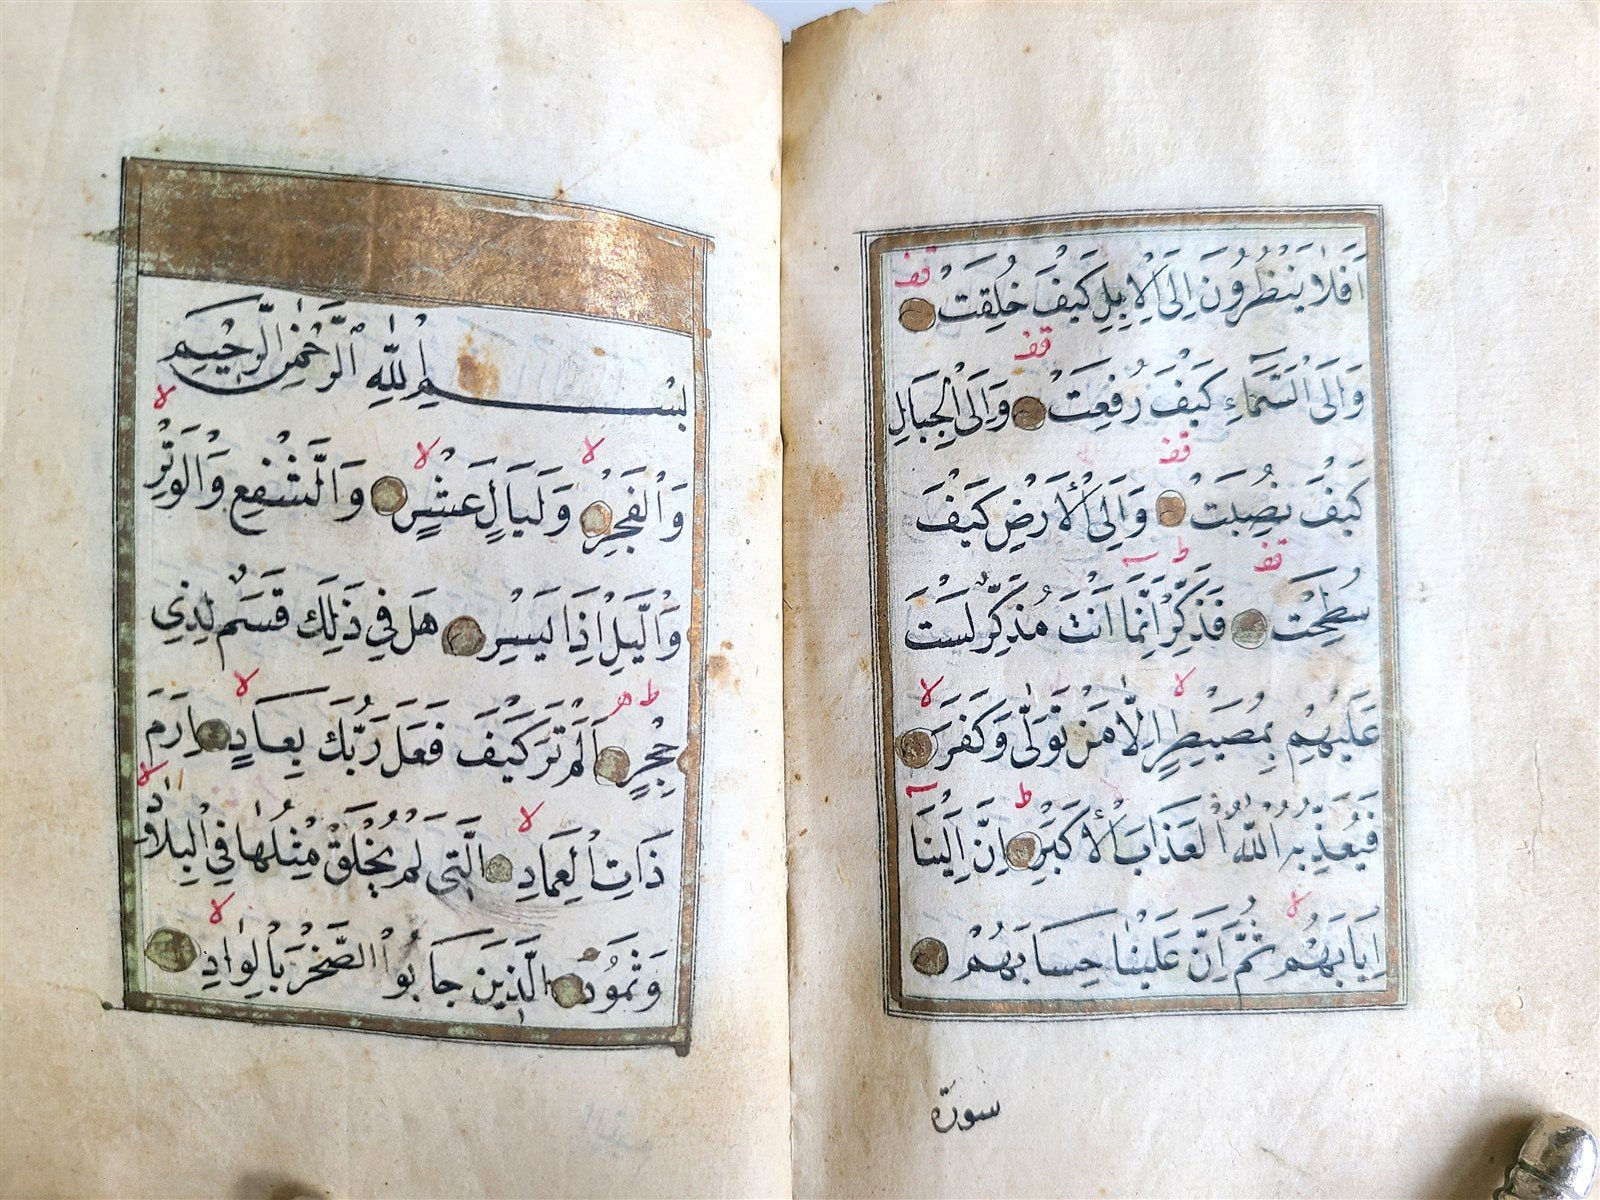 اَفَلَا يَنْظُرُونَ اِلَى الْاِبِلِ كَيْفَ خُلِقَتْ قف
وَاِلَى السَّمَاءِ كَيْفَ رُفِعَتْ قف وَاِلَى الْجِبَالِ
كَيْفَ نُصِبَتْ قف وَاِلَى الْاَرْضِ كَيْفَ
سُطِحَتْ قف فَذَكِّرْ اِنَّمَا اَنْتَ مُذَكِّرٌ ط لَسْتَ
عَلَيْهِمْ بِمُصَيْطِرٍ لا اِلَّا مَنْ تَوَلّٰى وَكَفَرَ لا
فَيُعَذِّبُهُ اللّٰهُ الْعَذَابَ الْاَكْبَرَ ط اِنَّ اِلَيْنَا
اِيَابَهُمْ ثُمَّ اِنَّ عَلَيْنَا حِسَابَهُمْ
سورة
بِسْمِ اللّٰهِ الرَّحْمٰنِ الرَّحِيمِ
وَالْفَجْرِ لا وَلَيَالٍ عَشْرٍ لا وَالشَّفْعِ وَالْوَتْرِ لا
وَالَّيْلِ اِذَا يَسْرِ هَلْ فِي ذٰلِكَ قَسَمٌ لِذِي
حِجْرٍ ط اَلَمْ تَرَ كَيْفَ فَعَلَ رَبُّكَ بِعَادٍ لا اِرَمَ
ذَاتِ الْعِمَادِ لا الَّتِي لَمْ يُخْلَقْ مِثْلُهَا فِي الْبِلَادِ لا
وَثَمُودَ الَّذِينَ جَابُوا الصَّخْرَ بِالْوَادِ لا